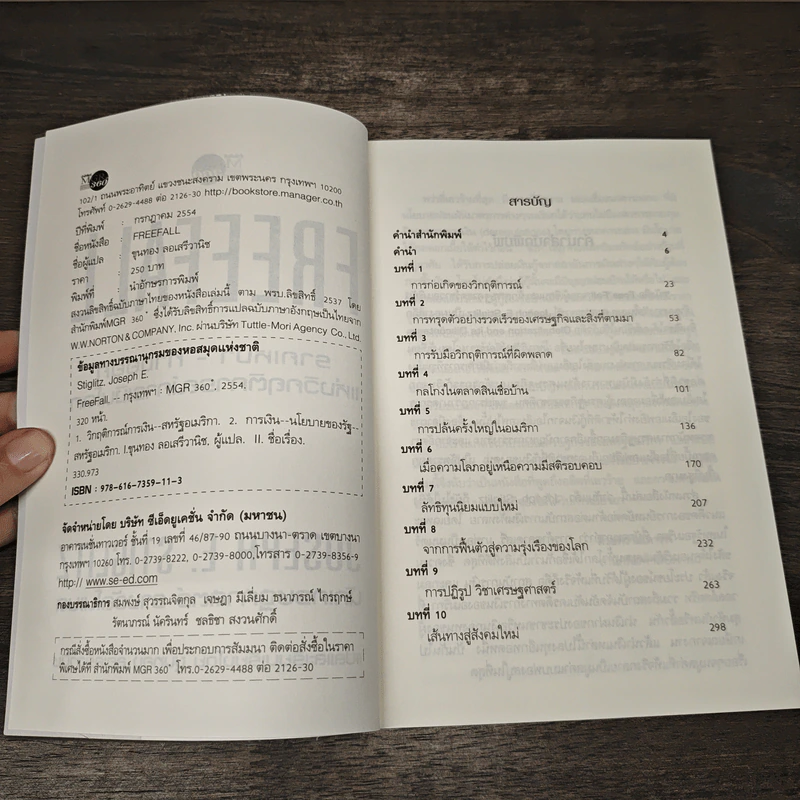 360
102/1 ถนนพระอาทิตย์ แขวงชนะสงคราม เขตพระนคร กรุงเทพฯ 10200
โทรศัพท์ 0-2629-4488 ต่อ 2126-30 http://bookstore.manager.co.th
ปีที่พิมพ์ : กรกฎาคม 2554
ชื่อหนังสือ : FREEFALL
ชื่อผู้แปล : ขุนทอง ลอเสรีวานิช
ราคา : 250 บาท
พิมพ์ที่ : นำอักษรการพิมพ์
สงวนลิขสิทธิ์ฉบับภาษาไทยของหนังสือเล่มนี้ ตาม พรบ.ลิขสิทธิ์ 2537 โดย
สำนักพิมพ์MGR 360° ซึ่งได้รับลิขสิทธิ์การแปลฉบับภาษาอังกฤษเป็นไทยจาก
W.W.NORTON & COMPANY, Inc. ผ่านบริษัท Tuttle-Mori Agency Co., Ltd.
ข้อมูลทางบรรณานุกรมของหอสมุดแห่งชาติ
Stiglitz, Joseph E.
FreeFall. -- กรุงเทพฯ : MGR 360°, 2554.
320 หน้า.
1. วิกฤติการณ์การเงิน--สหรัฐอเมริกา. 2. การเงิน--นโยบายของรัฐ--
สหรัฐอเมริกา. I.ขุนทอง ลอเสรีวานิช, ผู้แปล. II. ชื่อเรื่อง.
330.973
ISBN : 978-616-7359-11-3
จัดจำหน่ายโดย บริษัท ซีเอ็ดยูเคชั่น จำกัด (มหาชน)
อาคารเนชั่นทาวเวอร์ ชั้นที่ 19 เลขที่ 46/87-90 ถนนบางนา-ตราด เขตบางนา
กรุงเทพฯ 10260 โทร. 0-2739-8222, 0-2739-8000,โทรสาร 0-2739-8356-9
http:// www.se-ed.com
กองบรรณาธิการ สมพงษ์ สุวรรณจิตกุล เจษฎา มีเลี่ยม ธนาภรณ์ ไกรฤกษ์
รัตนาภรณ์ นัครินทร์ ชลธิชา สงวนศักดิ์
กรณีสั่งซื้อหนังสือจำนวนมาก เพื่อประกอบการสัมมนา ติดต่อสั่งซื้อในราคา
พิเศษได้ที่ สำนักพิมพ์ MGR 360° โทร.0-2629-4488 ต่อ 2126-30
สารบัญ
คำนำสำนักพิมพ์ 4
คำนำ 6
บทที่ 1
การก่อเกิดของวิกฤติการณ์ 23
บทที่ 2
การทรุดตัวอย่างรวดเร็วของเศรษฐกิจและสิ่งที่ตามมา 53
บทที่ 3
การรับมือวิกฤติการณ์ที่ผิดพลาด 82
บทที่ 4
กลโกงในตลาดสินเชื่อบ้าน 101
บทที่ 5
การปล้นครั้งใหญ่ในอเมริกา 136
บทที่ 6
เมื่อความโลภอยู่เหนือความมีสติรอบคอบ 170
บทที่ 7
ลัทธิทุนนิยมแบบใหม่ 207
บทที่ 8
จากการฟื้นตัวสู่ความรุ่งเรืองของโลก 232
บทที่ 9
การปฏิรูป วิชาเศรษฐศาสตร์ 263
บทที่ 10
เส้นทางสู่สังคมใหม่ 298